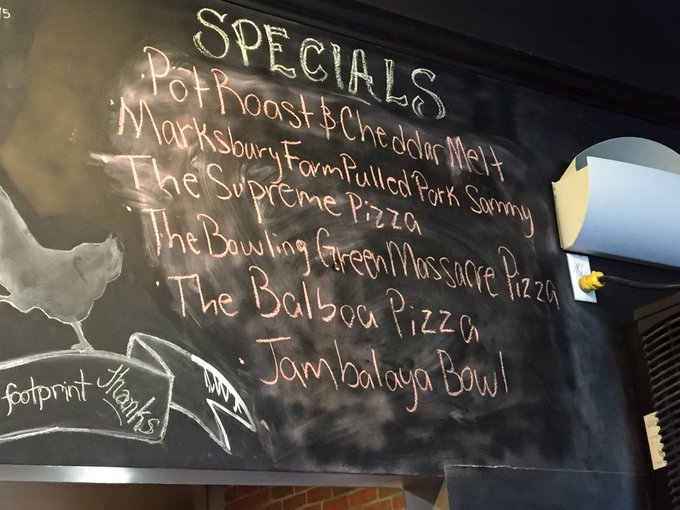 SPECIALS
· Pot Roast & Cheddar Melt
· Marksbury Farm Pulled Pork Sammy
· The Supreme Pizza
· The Bowling Green Massacre Pizza
· The Balboa Pizza
· Jambalaya Bowl
footprint Thanks